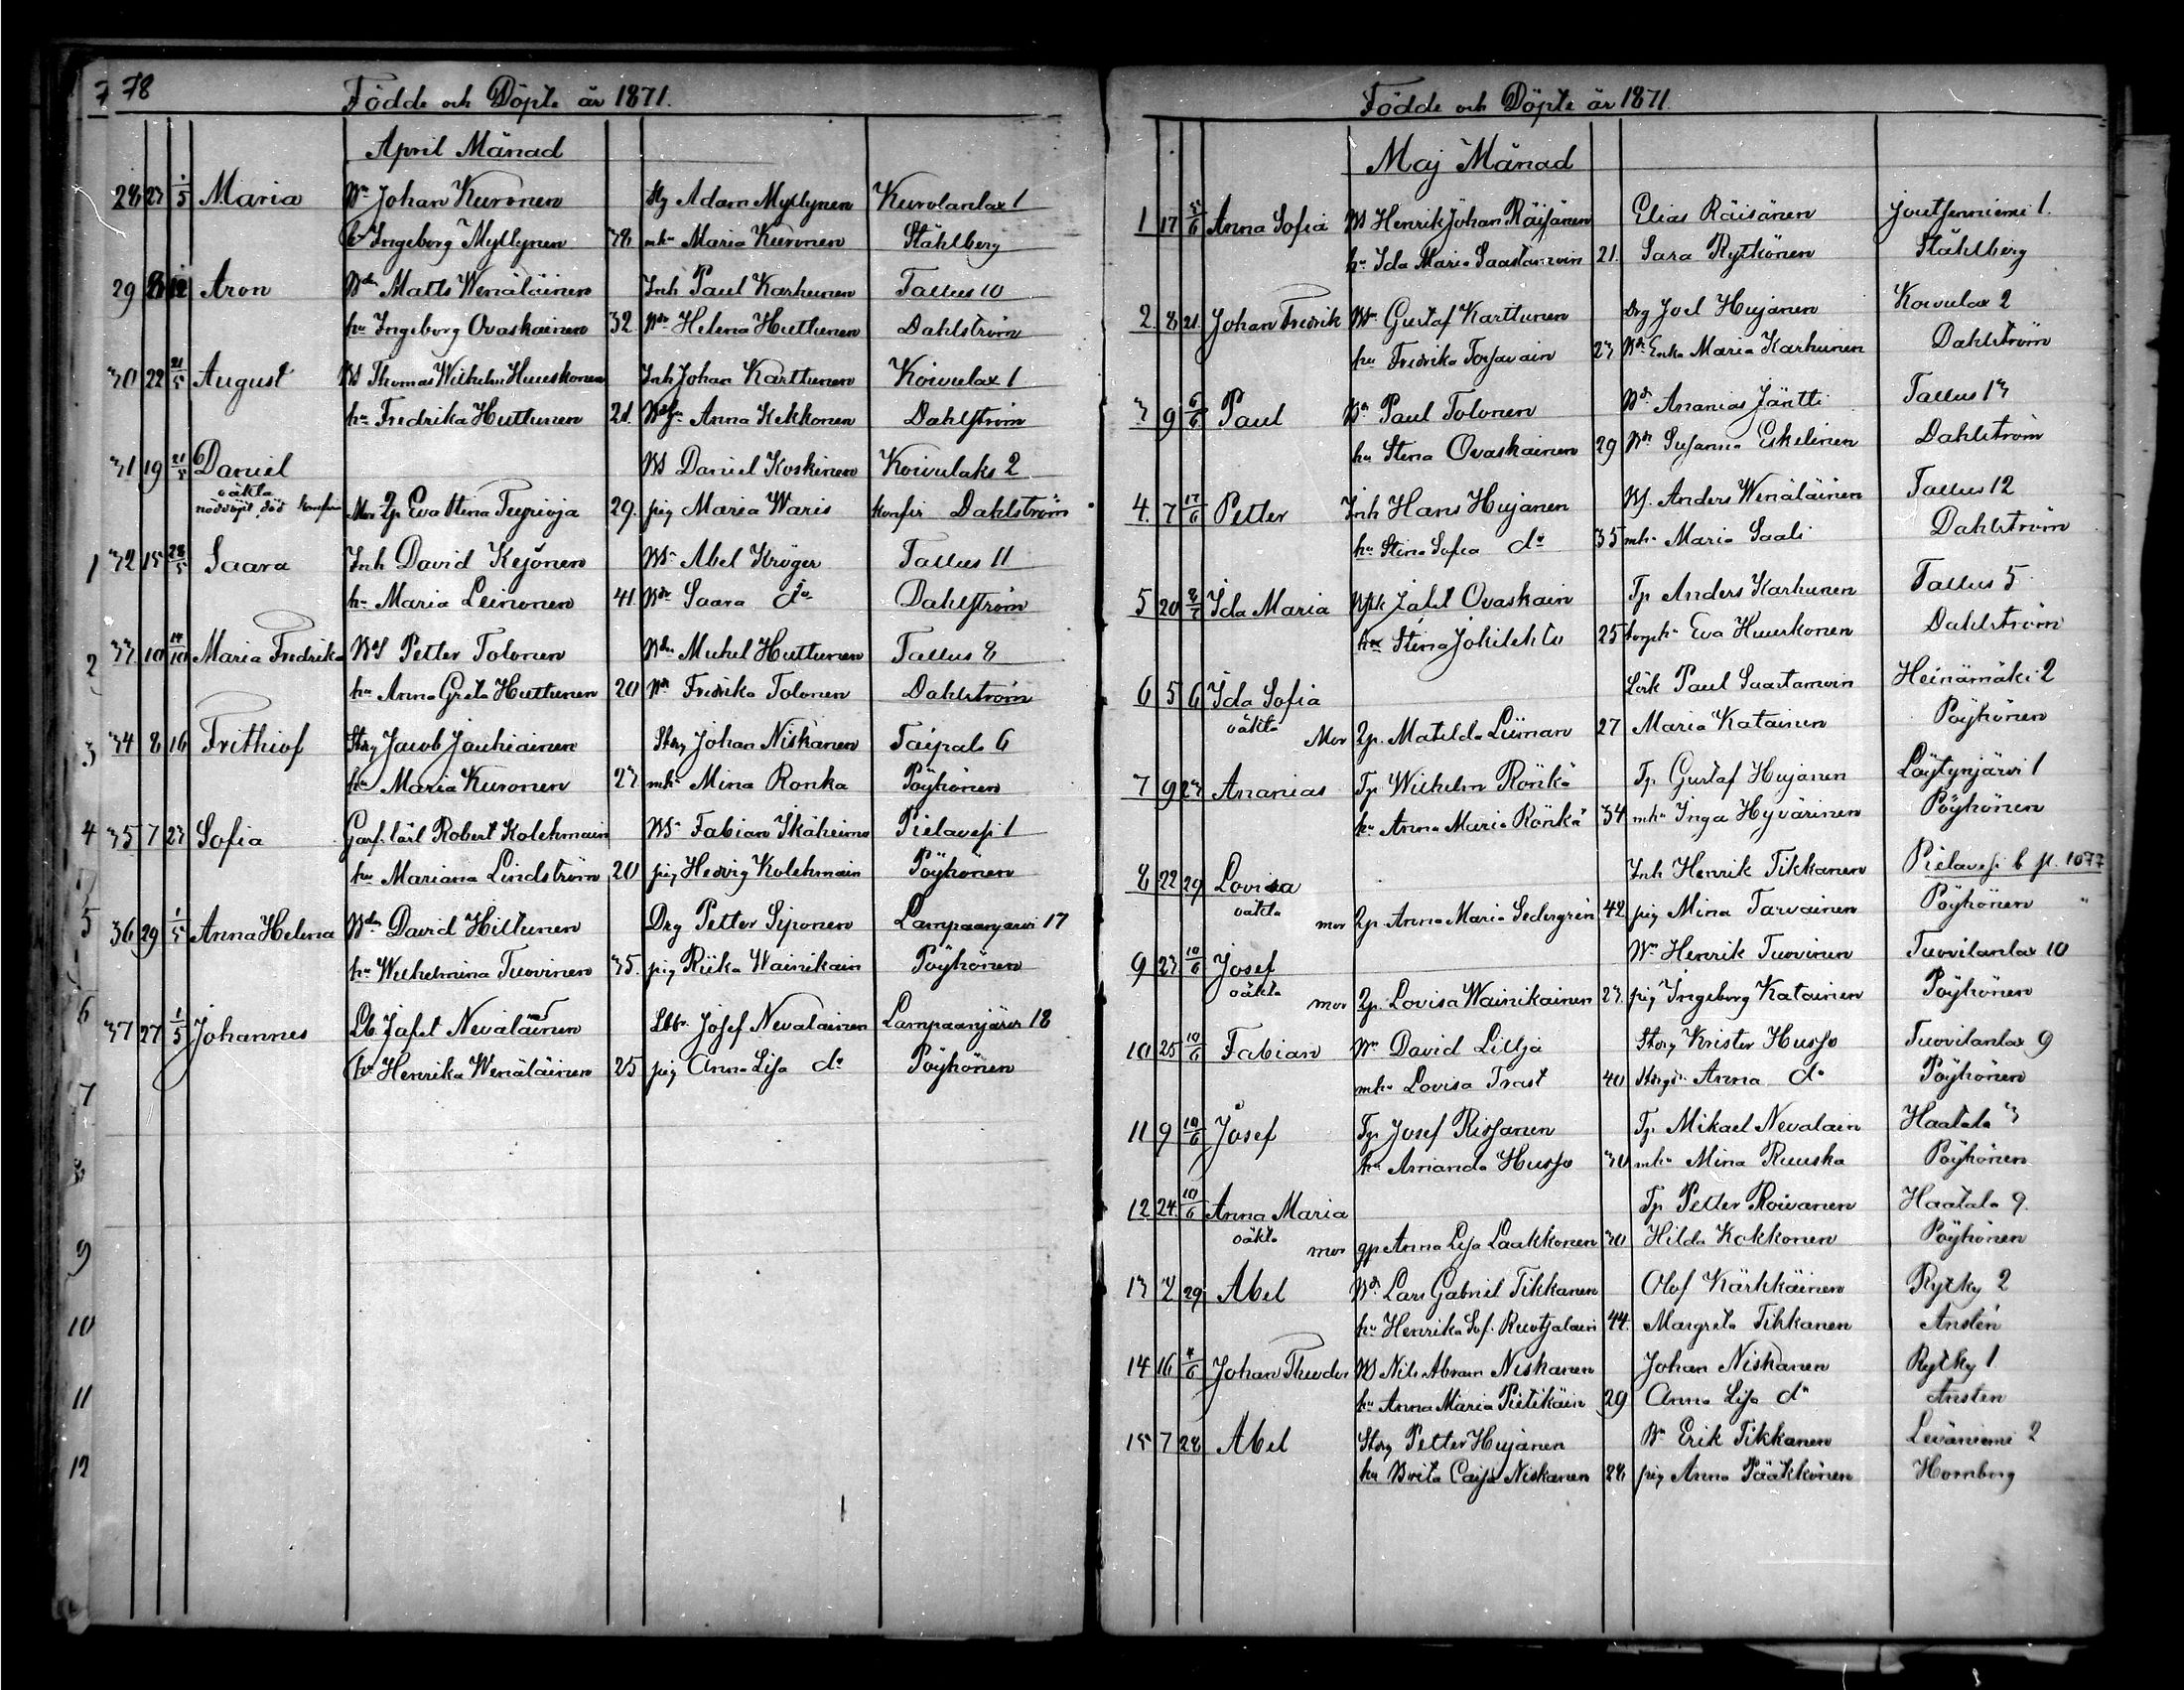 78
Födde och Döpte år 1871.
April Månad
28 23 1/5 Maria Bn Johan Kuronen Stg Adam Myllynen Kuvolanlax 1
hu Ingeborg Myllynen 38 mhu Maria Kuronen Ståhlberg
29 Aron Bdn Matts Wenäläinen Inh Paul Karhunen Tallus 10
hu Ingeborg Ovaskainen 32 Bdn Helena Huttunen Dahlström
30 22 21/5 August BS Thomas Wilhelm Huuskonen Inh Johan Karttunen Koivulax 1
hu Fredrika Huttunen 21. Anna Kekkonen Dahlström
31 19 21/5 Daniel BS Daniel Koskinen Koivulaks 2
oäkta
nöddöpt, död Mor Qp Eva Stina Tepioja 29. pig Maria Waris konfir Dahlström
32 15 28/5 Saara Inh David Kejonen BSn Abel Kröger Tallus 11
hu Maria Leinonen 41. Bdn Saara do Dahlström
33 10 14/10 Maria Fredrika BdS Petter Tolonen Bdn Mickel Huttunen Tallus 8
hu Anna Greta Huttunen 20 Bdr Fredrika Tolonen Dahlström
34 8 16 Frithiof Storg Jacob Jauhiainen Storg Johan Niskanen Taipale 6
hu Maria Kuronen 23 mhu Mina Ronka Pöyhönen
35 7 23 Sofia Garf. lärl Robert Kolehmain BSn Fabian Ikäheimo Pielavesi 1
hu Mariana Lindström 20 pig Hedvig Kolehmain Pöyhönen
36 29 1/5 Anna Helena Bdn David Hiltunen Drg Petter Siponen Lampaanjärvi 17
hu Wilhelmina Tuovinen 35. pig Riika Wainikain Pöyhönen
37 27 1/5 Johannes Lb. Jafet Nevalainen Lbbr. Josef Nevalainen Lampaanjärvi 18
hu Henrika Wenäläinen 25 pig Anna Lisa do Pöyhönen
1
2
3
4
5
6
7
8
9
10
11
12
Födde och Döpte år 1871.
Maj Månad
1 17 Anna Sofia BS Henrik Johan Räisänen Elias Räisänen Joutsenniemi 1.
hu Ida Maria Saastamoin 21. Sara Rytkönen Ståhlberg
2 8 21. Johan Fredrik Bn Gustaf Karttunen Drg Joel Hujanen Koivulax 2
hu Fredrika Torsavain 23 Bdr Enka Maria Karhunen Dahlström
3 9 6/6 Paul Bn Paul Tolonen Bdn Ananias Jäntti Tallus 13
hu Stina Ovaskainen 29 Bdn Susanna Eskelinen Dahlström
4. 7 17/6 Petter Inh Hans Hujanen BS. Anders Wenäläinen Tallus 12
hu Stina Sofia do 35 mhu Maria Saali Dahlström
5 20 Ida Maria Jafet Ovaskain Tp Anders Karhunen Tallus 5
hu Stina Jokilehto 25 torphu Eva Huuskonen Dahlström
6 5 6 Ida Sofia Lösk Paul Saastamoin Heinämäki 2
oäkta Mor Qp. Matilda Liiman 27 Maria Katainen Pöyhönen
7 9 23 Ananias Tp Wilhelm Rönkä Tp Gustaf Hujanen Löytynjärvi 1
hu Anna Maria Rönkä 34 mhu Inga Hyvärinen Pöyhönen
8 22 29 Lovisa Inh Henrik Tikkanen Pielavesi b p. 1077
oäkta mor Qp Anna Maria Sedergrén 42 pig Mina Tarvainen Pöyhönen "
9 23 10/6 Josef Bn Henrik Tuovinen Tuovilanlax 10
oäkta mor Qp. Lovisa Wainikainen 23. pig Ingeborg Katainen Pöyhönen
10 25 10/6 Fabian Bn David Lillja Storg Krister Husso Tuovilanlax 9
mhu Lovisa Trast 40 Storghu Anna do Pöyhönen
11 9 10/6 Josef Tp Josef Rissanen Tp. Mikael Nevalain Haatala 3
hu Amanda Husso 30 mhu Mina Ruuska Pöyhönen
12 24. 10/6 Anna Maria Tp Petter Roivanen Haatala 9.
oäkta mor gp Anna Lisa Laakkonen 30 Hilda Kokkonen Pöyhönen
13 2 29 Abel Bdn Lars Gabriel Tikkanen Olof Kärkkäinen Rytky 2
hu Henrika Sof. Ruotsalain 44. Margreta Tikkanen Anstén
14 16 4/6 Johan Theodor BS Nils Abram Niskanen Johan Niskanen Rytky 1.
hu Anna Maria Pietikäin 29 Anna Lisa do Ansten
15 7 28 Abel Storg Petter Hujanen Bn Erik Tikkanen Leväniemi 2
hu Brita Caisa Niskanen 28 pig Anna Pääkkönen Hornborg